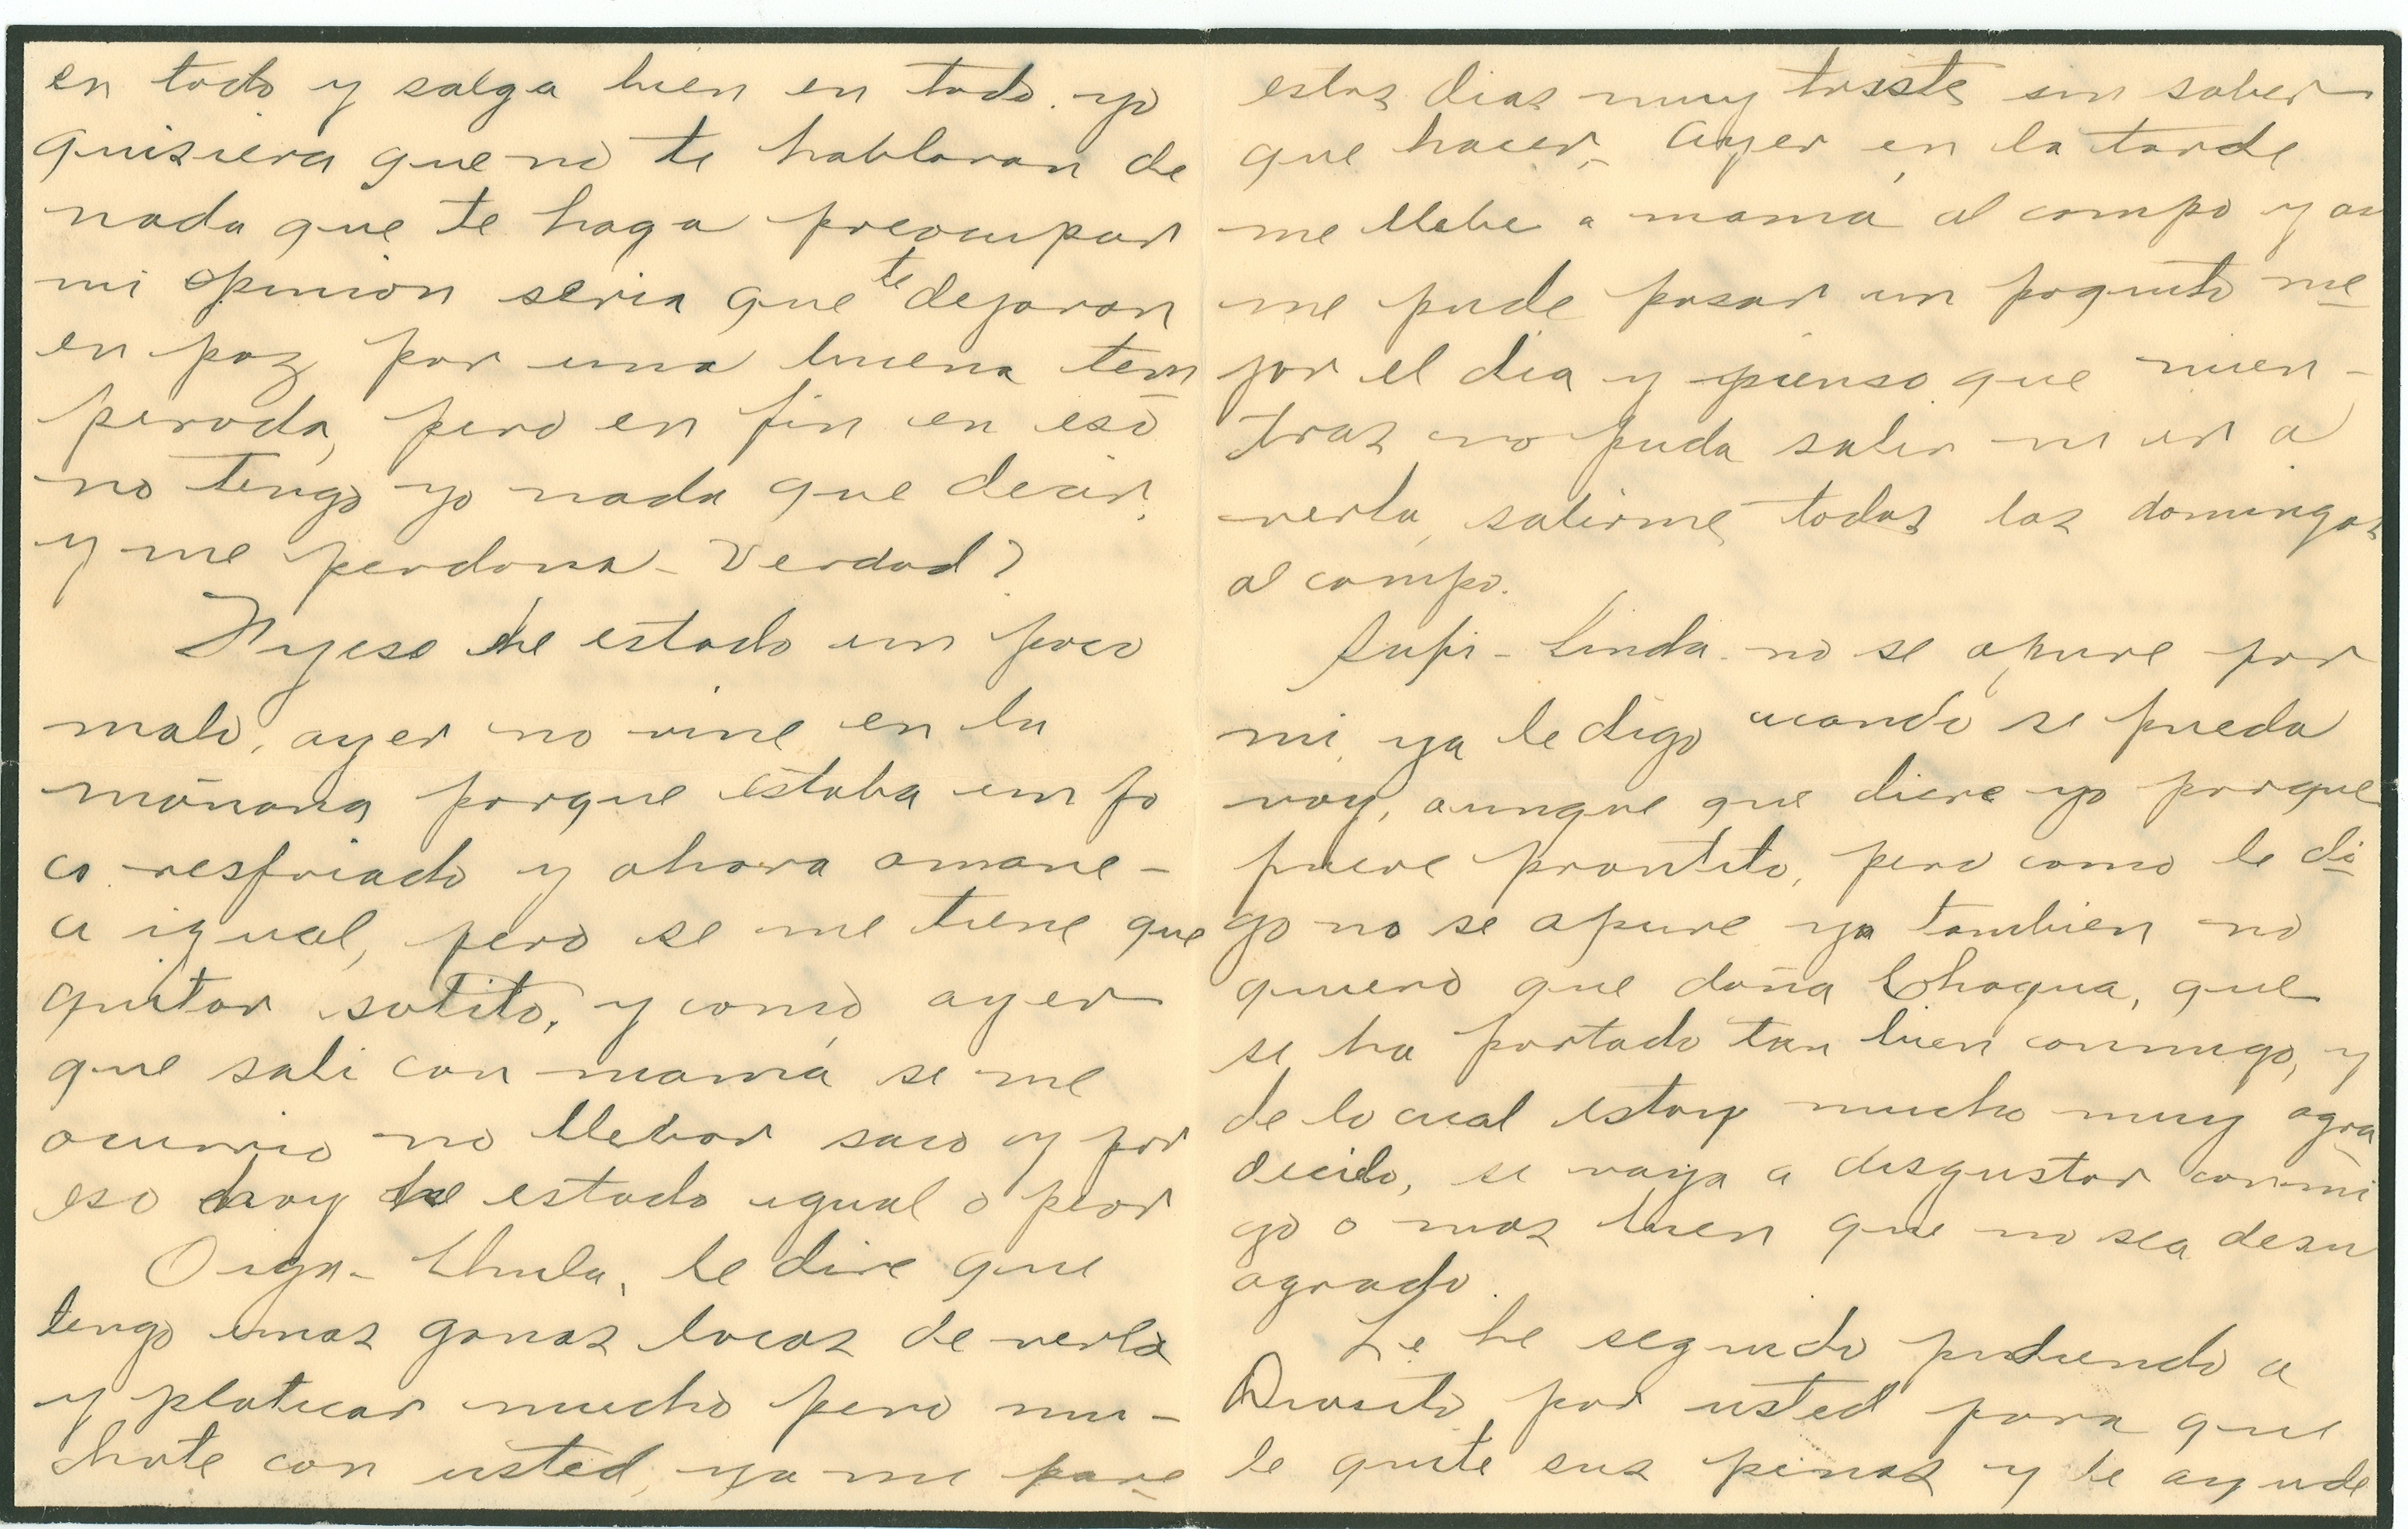 en todo y salga bien en todo. yo
quisiera que no te hablaran de
nada que te haga preocupar
mi opinion seria que te dejaran
en paz por una buena tem
perada, pero en fin en eso
no tengo yo nada que decir,
y me perdona - Verdad?
Fijese he estado un poco
malo, ayer no vine en la
mañana porque estaba un po
co resfriado y ahora amane-
ci igual, pero se me tiene que
quitar solito, y como ayer
que sali con mamá se me
ocurrio no llebar saco y por
eso hoy he estado igual o peor
Oiga - Chula, le dire que
tengo unas ganas locas de verla
y platicar mucho pero mu-
chote con usted, ya me pare
estos dias muy triste sin saber
que hacer, ayer en la tarde
me llebe a mamá al campo y asi
me pude pasar un poquito me
jor el dia y pienso que mien-
tras no puda salir ni ir a
verla, salirme todos los domingos
al campo.
Lupi - Linda - no se apure por
mi, ya le digo cuando se pueda
voy, aunque que diera yo porque
fuera prontito, pero como le di
go no se apure ya tambien no
quiero que doña Chagua, que
se ha portado tan bien conmigo, y
de lo cual estoy mucho muy agra
decido, se vaya a disgustar conmi
go o mas bien que no sea de su
agrado.
Le he seguido pidiendo a
Diosito por usted para que
le quite sus penas y le ayude